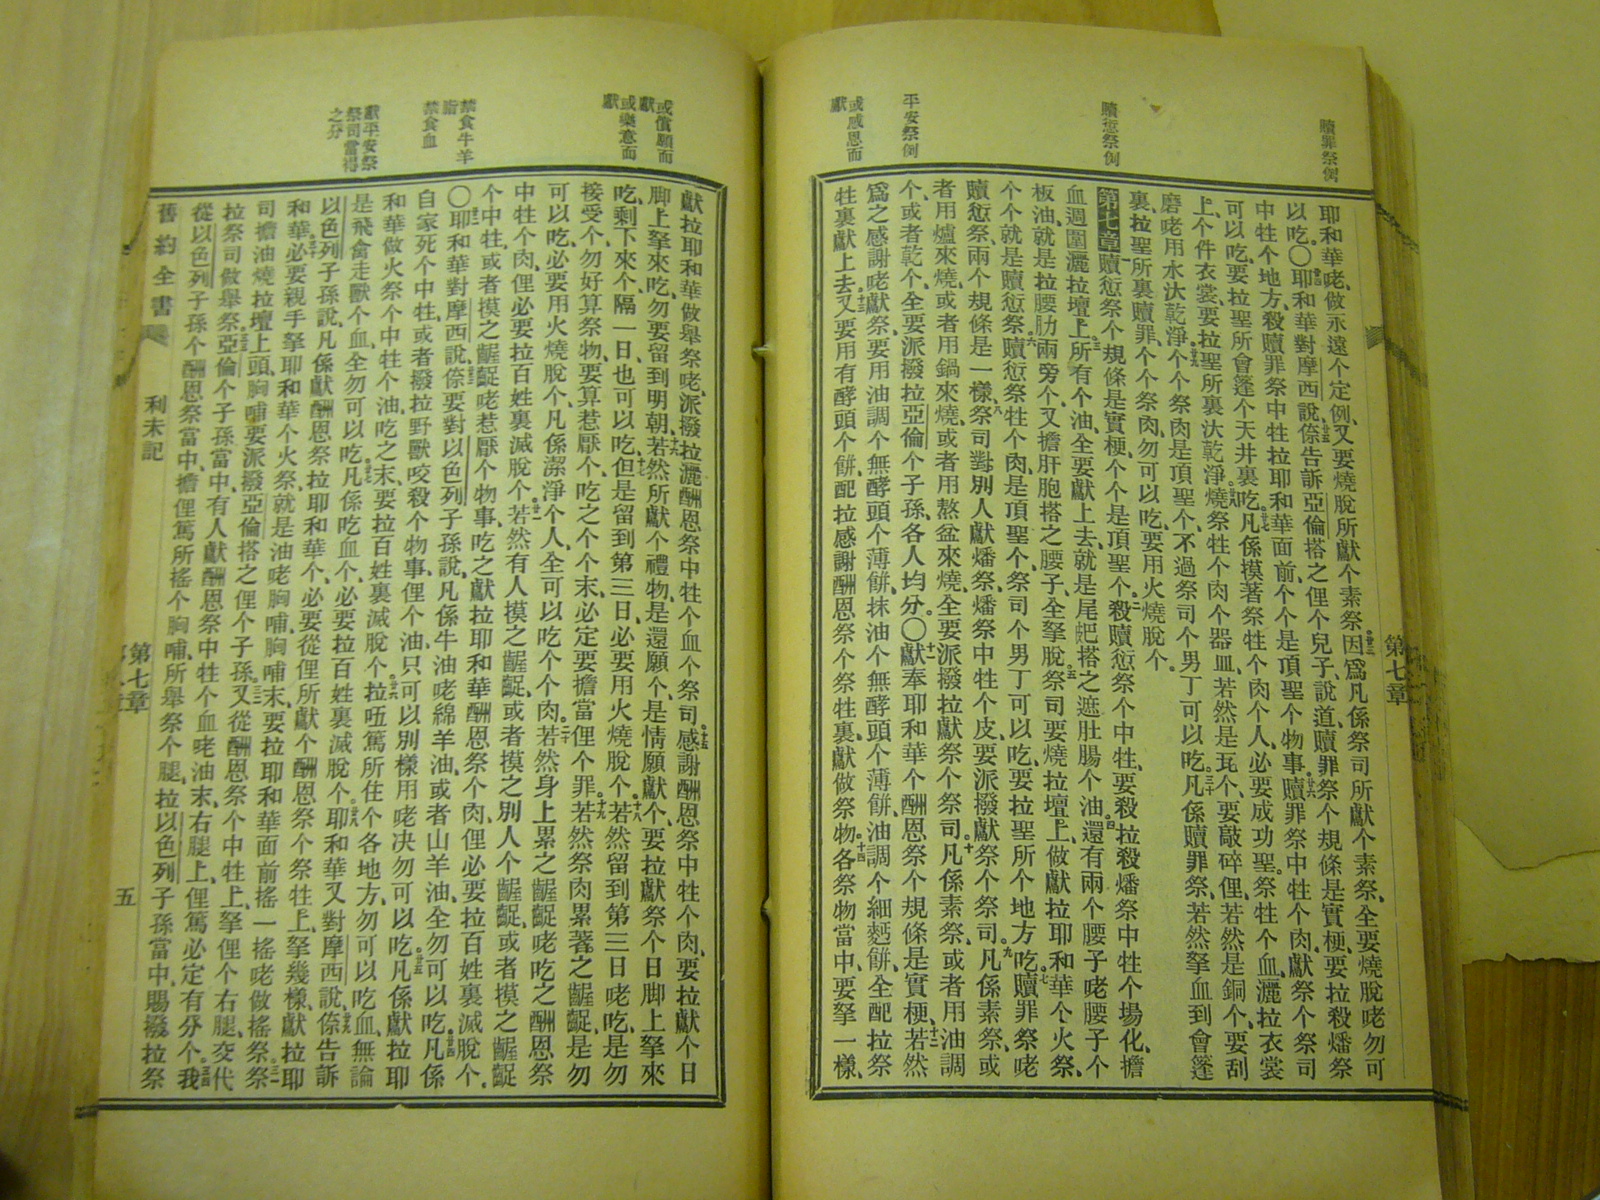 贖罪祭例
贖愆祭例
平安祭例
或感恩而
獻
第七章
耶和華咾、做永遠个定例、又要燒脫所獻个素祭、廿三因爲凡係祭司所獻个素祭、全要燒脫咾勿可
以吃。〇廿四耶和華對摩西說、廿五㑚告訴亞倫搭之俚个兒子、說道、贖罪祭个規條是實梗、要拉殺燔祭
中牲个地方、殺贖罪祭中牲拉耶和華面前、个个是頂聖个物事、廿六贖罪祭中牲个肉、獻祭个祭司
可以吃、要拉聖所會篷个天井裏吃。廿七凡係摸著祭牲个肉个人、必要成功聖。祭牲个血、灑拉衣裳
上、个件衣裳、要拉聖所裏汏乾淨、廿八燒祭牲个肉个器皿、若然是瓦个、要敲碎俚、若然是銅个、要刮
磨咾用水汏乾淨。廿九个个祭肉是頂聖个、不過祭司个男丁可以吃。三十凡係贖罪祭、若然拏血到會篷
裏、拉聖所裏贖罪个个祭肉、勿可以吃、要用火燒脫个。
第七章一贖愆祭个規條是實梗、个个是頂聖个。二殺贖愆祭个中牲、要殺拉殺燔祭中牲个場化、擔
血週圍灑拉壇上。三所有个油、全要獻上去、就是尾巴搭之遮肚腸个油。四還有兩个腰子咾腰子个
板油、就是拉腰肋兩旁个、又擔肝胞搭之腰子、全拏脫。五祭司要燒拉壇上、做獻拉耶和華个火祭、
个个就是贖愆祭。六贖愆祭牲个肉、是頂聖个、祭司个男丁可以吃、要拉聖所个地方吃。七贖罪祭咾
贖愆祭、兩个規條是一樣、八祭司對別人獻燔祭、燔祭中牲个皮、要派撥獻祭个祭司。九凡係素祭、或
者用爐來燒、或者用鍋來燒、或者用熬盆來燒、全要派撥拉獻祭个祭司。十凡係素祭、或者用油調
个、或者乾个、全要派撥拉亞倫个子孫、各人均分。〇十一獻奉耶和華个酬恩祭个規條是實梗、十二若然
爲之感謝咾獻祭、要用油調个無酵頭个薄餅、抹油个無酵頭个薄餅、油調个細麪餅、全配拉祭
牲裏獻上去、十三又要用有酵頭个餅、配拉感謝酬恩祭个祭牲裏、獻做祭物。十四各祭物當中、要拏一樣、
或償願而
獻
或樂意而
獻
禁食牛羊
脂
禁食血
獻平安祭
祭司當得
之分
獻拉耶和華做舉祭咾、派撥拉灑酬恩祭中牲个血个祭司。十五感謝酬恩祭中牲个肉、要拉獻个日
脚上拏來吃、勿要留到明朝。十六若然所獻个禮物、是還願个、是情願獻个、要拉獻祭个日脚上拏來
吃、剩下來个、隔一日也可以吃。十七但是留到第三日、必要用火燒脫个。十八若然留到第三日咾吃、是勿
接受个、勿好算祭物、要算惹厭个、吃之个个末、必定要擔當俚个罪。十九若然祭肉累著之齷齪、是勿
可以吃、必要用火燒脫个、凡係潔淨个人、全可以吃个个肉。二十若然身上累之齷齪咾吃之酬恩祭
中牲个肉、俚必要拉百姓裏滅脫个。廿一若然有人摸之齷齪、或者摸之別人个齷齪、或者摸之齷齪
个中牲、或者摸之齷齪咾惹厭个物事、吃之獻拉耶和華酬恩祭个肉、俚必要拉百姓裏滅脫个。
〇廿二耶和華對摩西說、廿三㑚要對以色列子孫說、凡係牛油咾綿羊油、或者山羊油、全勿可以吃。廿四凡係
自家死个中牲、或者撥拉野獸咬殺个物事、俚个油、只可以別樣用咾、决勿可以吃。廿五凡係獻拉耶
和華做火祭个中牲个油、吃之末、要拉百姓裏滅脫个。廿六拉㑚篤所住个各地方、勿可以吃血、無論
是飛禽走獸个血、全勿可以吃。廿七凡係吃血个、必要拉百姓裏滅脫个。廿八耶和華又對摩西說、廿九㑚告訴
以色列子孫說、凡係獻酬恩祭拉耶和華个、必要從俚所獻个酬恩祭个祭牲上、拏幾樣、獻拉耶
和華、三十必要親手拏耶和華个火祭、就是油咾胸哺、胸哺末、要拉耶和華面前搖一搖咾做搖祭。卅一祭
司擔油燒拉壇上頭、胸哺要派撥亞倫搭之俚个子孫、卅二又從酬恩祭个中牲上、拏俚个右腿、交代
拉祭司做舉祭、卅三亞倫个子孫當中、有人獻酬恩祭中牲个血咾油末、右腿上、俚篤必定有分个。卅四我
從以色列子孫个酬恩祭當中、擔俚篤所搖个胸哺、所舉祭个腿、拉以色列子孫當中、賜撥拉祭
舊約全書
利未記
第七章
五